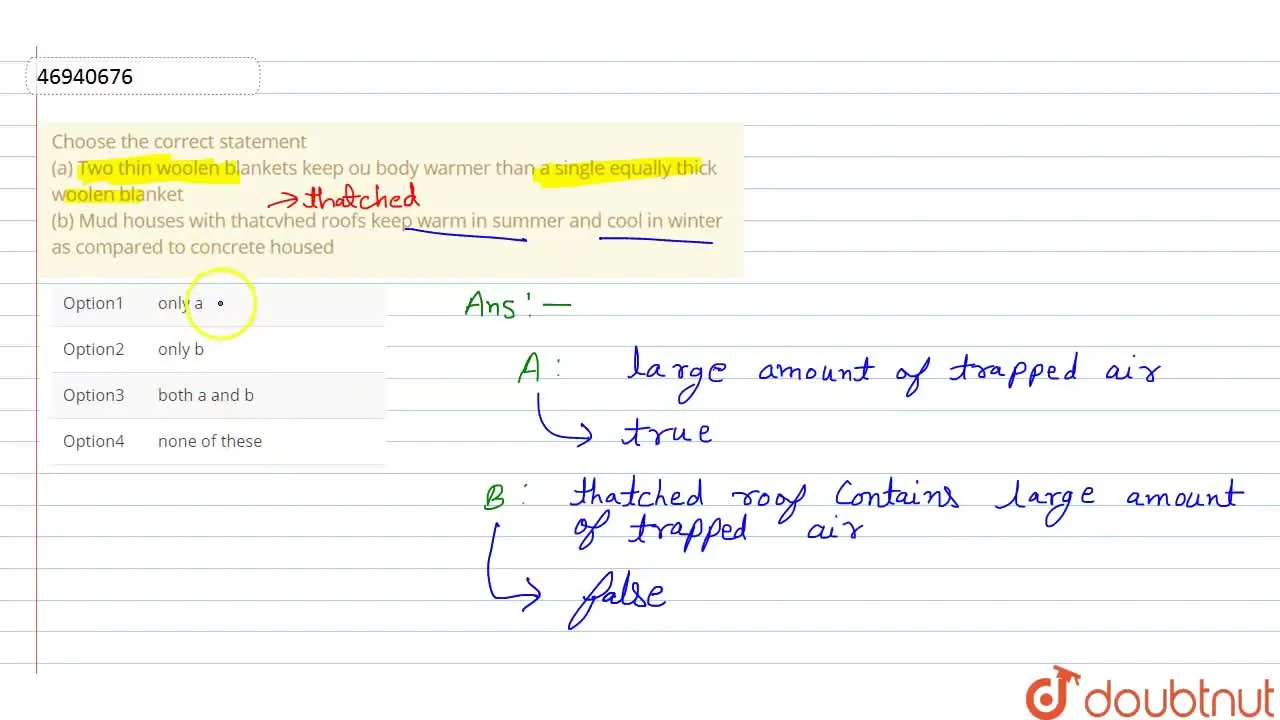 46940676
Choose the correct statement
(a) Two thin woolen blankets keep ou body warmer than a single equally thick
woolen blanket
→ thatched
(b) Mud houses with thatcvhed roofs keep warm in summer and cool in winter
as compared to concrete housed
Option1 only a
Option2 only b
Option3 both a and b
Option4 none of these
Ans :—
A : large amount of trapped air
→ true
B : thatched roof contains large amount
of trapped air
→ false
doubtnut